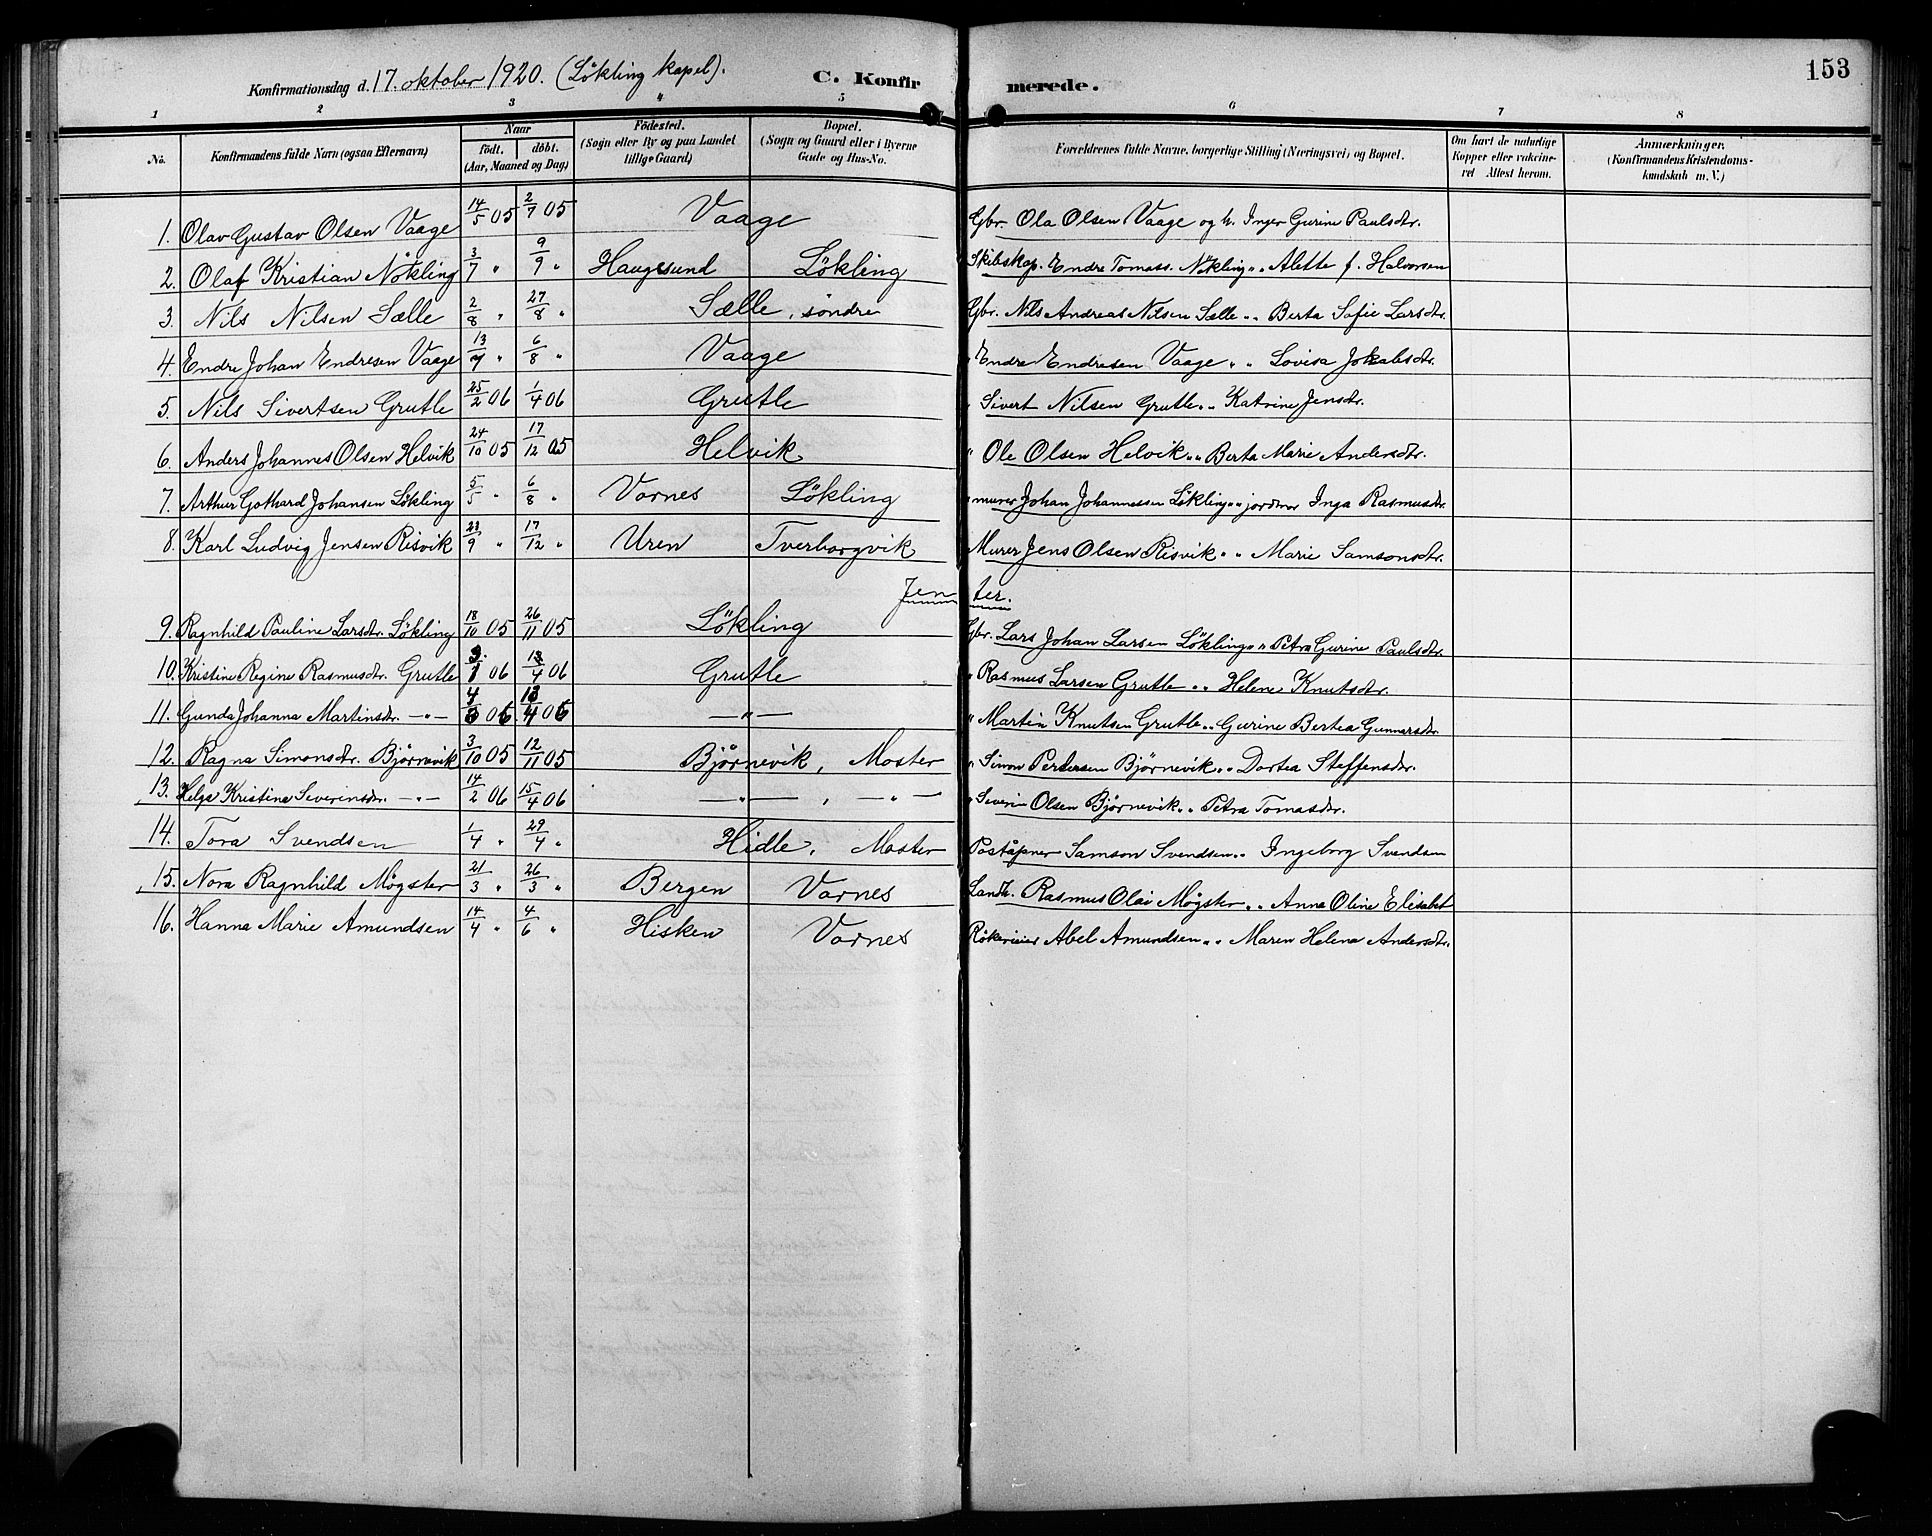 153
Konfirmationsdag d. 17. oktober 1920. (Løkling kapel). C. Konfirmerede.
1 2 3 4 5 6 7 8
No. Konfirmandens fulde Navn (ogsaa Efternavn) Naar født. døbt. (Aar, Maaned og Dag) Födested. (Sogn eller By og paa Landet tillige Gaard) Bopæl. (Sogn og Gaard eller i Byerne Gade og Hus-No. Forældrenes fulde Navne, borgerlige Stilling (Næringsvei) og Bopæl. Om havt de naturlige Kopper eller vakcineret Attest herom. Anmærkninger. (Konfirmandens Kristendomskundskab m. V.)
1. Olav Gustav Olsen Vaage 14/5 05 2/7 05 Vaage Gbr. Ola Olsen Vaage og h. Inger Gurine Paulsdtr.
2. Olaf Kristian Nökling 3/7 " 9/9 " Haugesund Lökling Skibskap. Endre Tomass. Nökling " " Alette f. Halvorsen
3. Nils Nilsen Sælle 2/8 " 27/8 " Sælle, söndre Gbr. Nils Andreas Nilsen Sælle " " Berta Sofie Larsdtr.
4. Endre Johan Endresen Vaage 13/7 " 6/8 " Vaage " Endre Endresen Vaage " " Lovisa Jokabsdtr.
5. Nils Sivertsen Grutle 25/2 06 1/4 06 Grutle " Sivert Nilsen Grutle " " Katrine Jensdtr.
6. Anders Johannes Olsen Helvik 24/10 05 17/12 05 Helvik " Ole Olsen Helvik " " Berta Marie Andersdtr.
7. Arthur Gothard Johansen Lökling 5/5 " 6/8 " Vornes Lökling " murer Johan Johannessen Lökling " " jordmor Inga Rasmusdtr.
8. Karl Ludvig Jensen Risvik 23/9 " 17/12 " Uren Tverborgvik Murer Jens Olsen Risvik " " Marie Samsonsdtr.
Jenter.
9. Ragnhild Pauline Larsdtr. Lökling 18/10 05 26/11 05 Lökling Gbr. Lars Johan Larsen Lökling " " Petra Gurine Paulsdtr.
10. Kristine Regine Rasmusdtr. Grutle 3/1 06 13/4 06 Grutle " Rasmus Larsen Grutle " " Helene Knutsdtr.
11. Gunda Johanna Martinsdtr. —"— 06 13/4 06 —"— " Martin Knutsen Grutle " " Gurine Bertea Gunnarsdtr.
12. Ragna Simonsdtr. Björnevik 3/10 05 12/11 05 Björnevik, Moster " Simon Pedersen Björnevik " " Dortea Steffensdtr.
13. Helga Kristina Severinsdtr. —"— 14/2 06 15/4 06 —"—, —"— " Severin Olsen Björnevik " " Petra Tomasdtr.
14. Tora Svendsen 1/4 " 29/4 " Hidle, Moster Poståpner Samson Svendsen " " Ingeborg Svendsen
15. Nora Ragnhild Mögster 21/3 " 26/3 " Bergen Vornes Landh. Rasmus Olai Mögster " " Anna Oline Elisabet
16. Hanna Marie Amundsen 14/4 " 4/6 " Hisken Vornes Rökerieier Abel Amundsen " " Maren Helena Andersdtr.